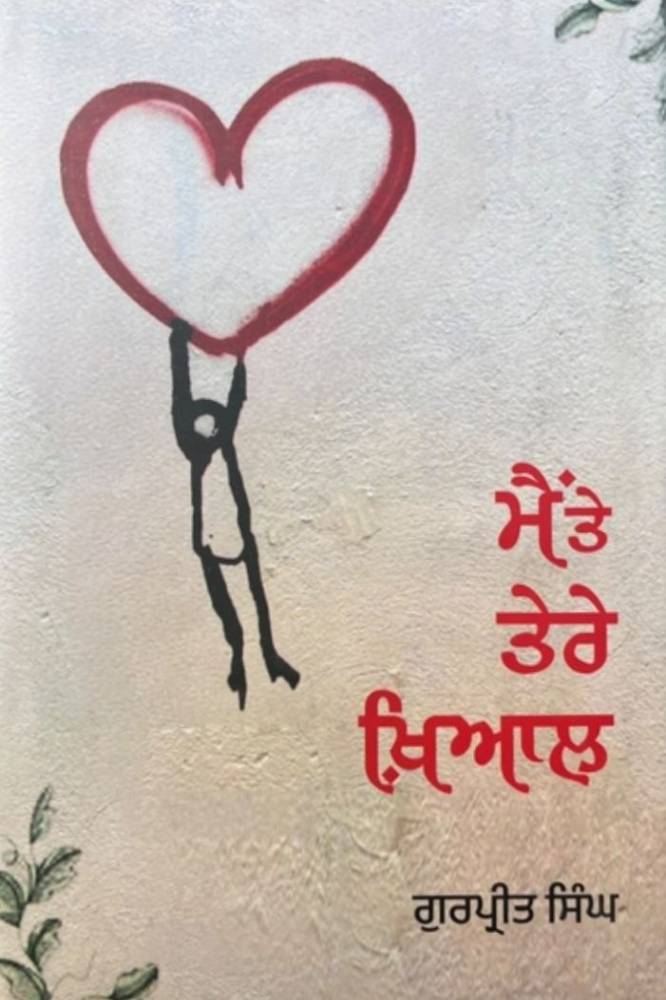 ਮੈਂ ਤੇ
ਤੇਰੇ
ਖ਼ਿਆਲ
ਗੁਰਪ੍ਰੀਤ ਸਿੰਘ